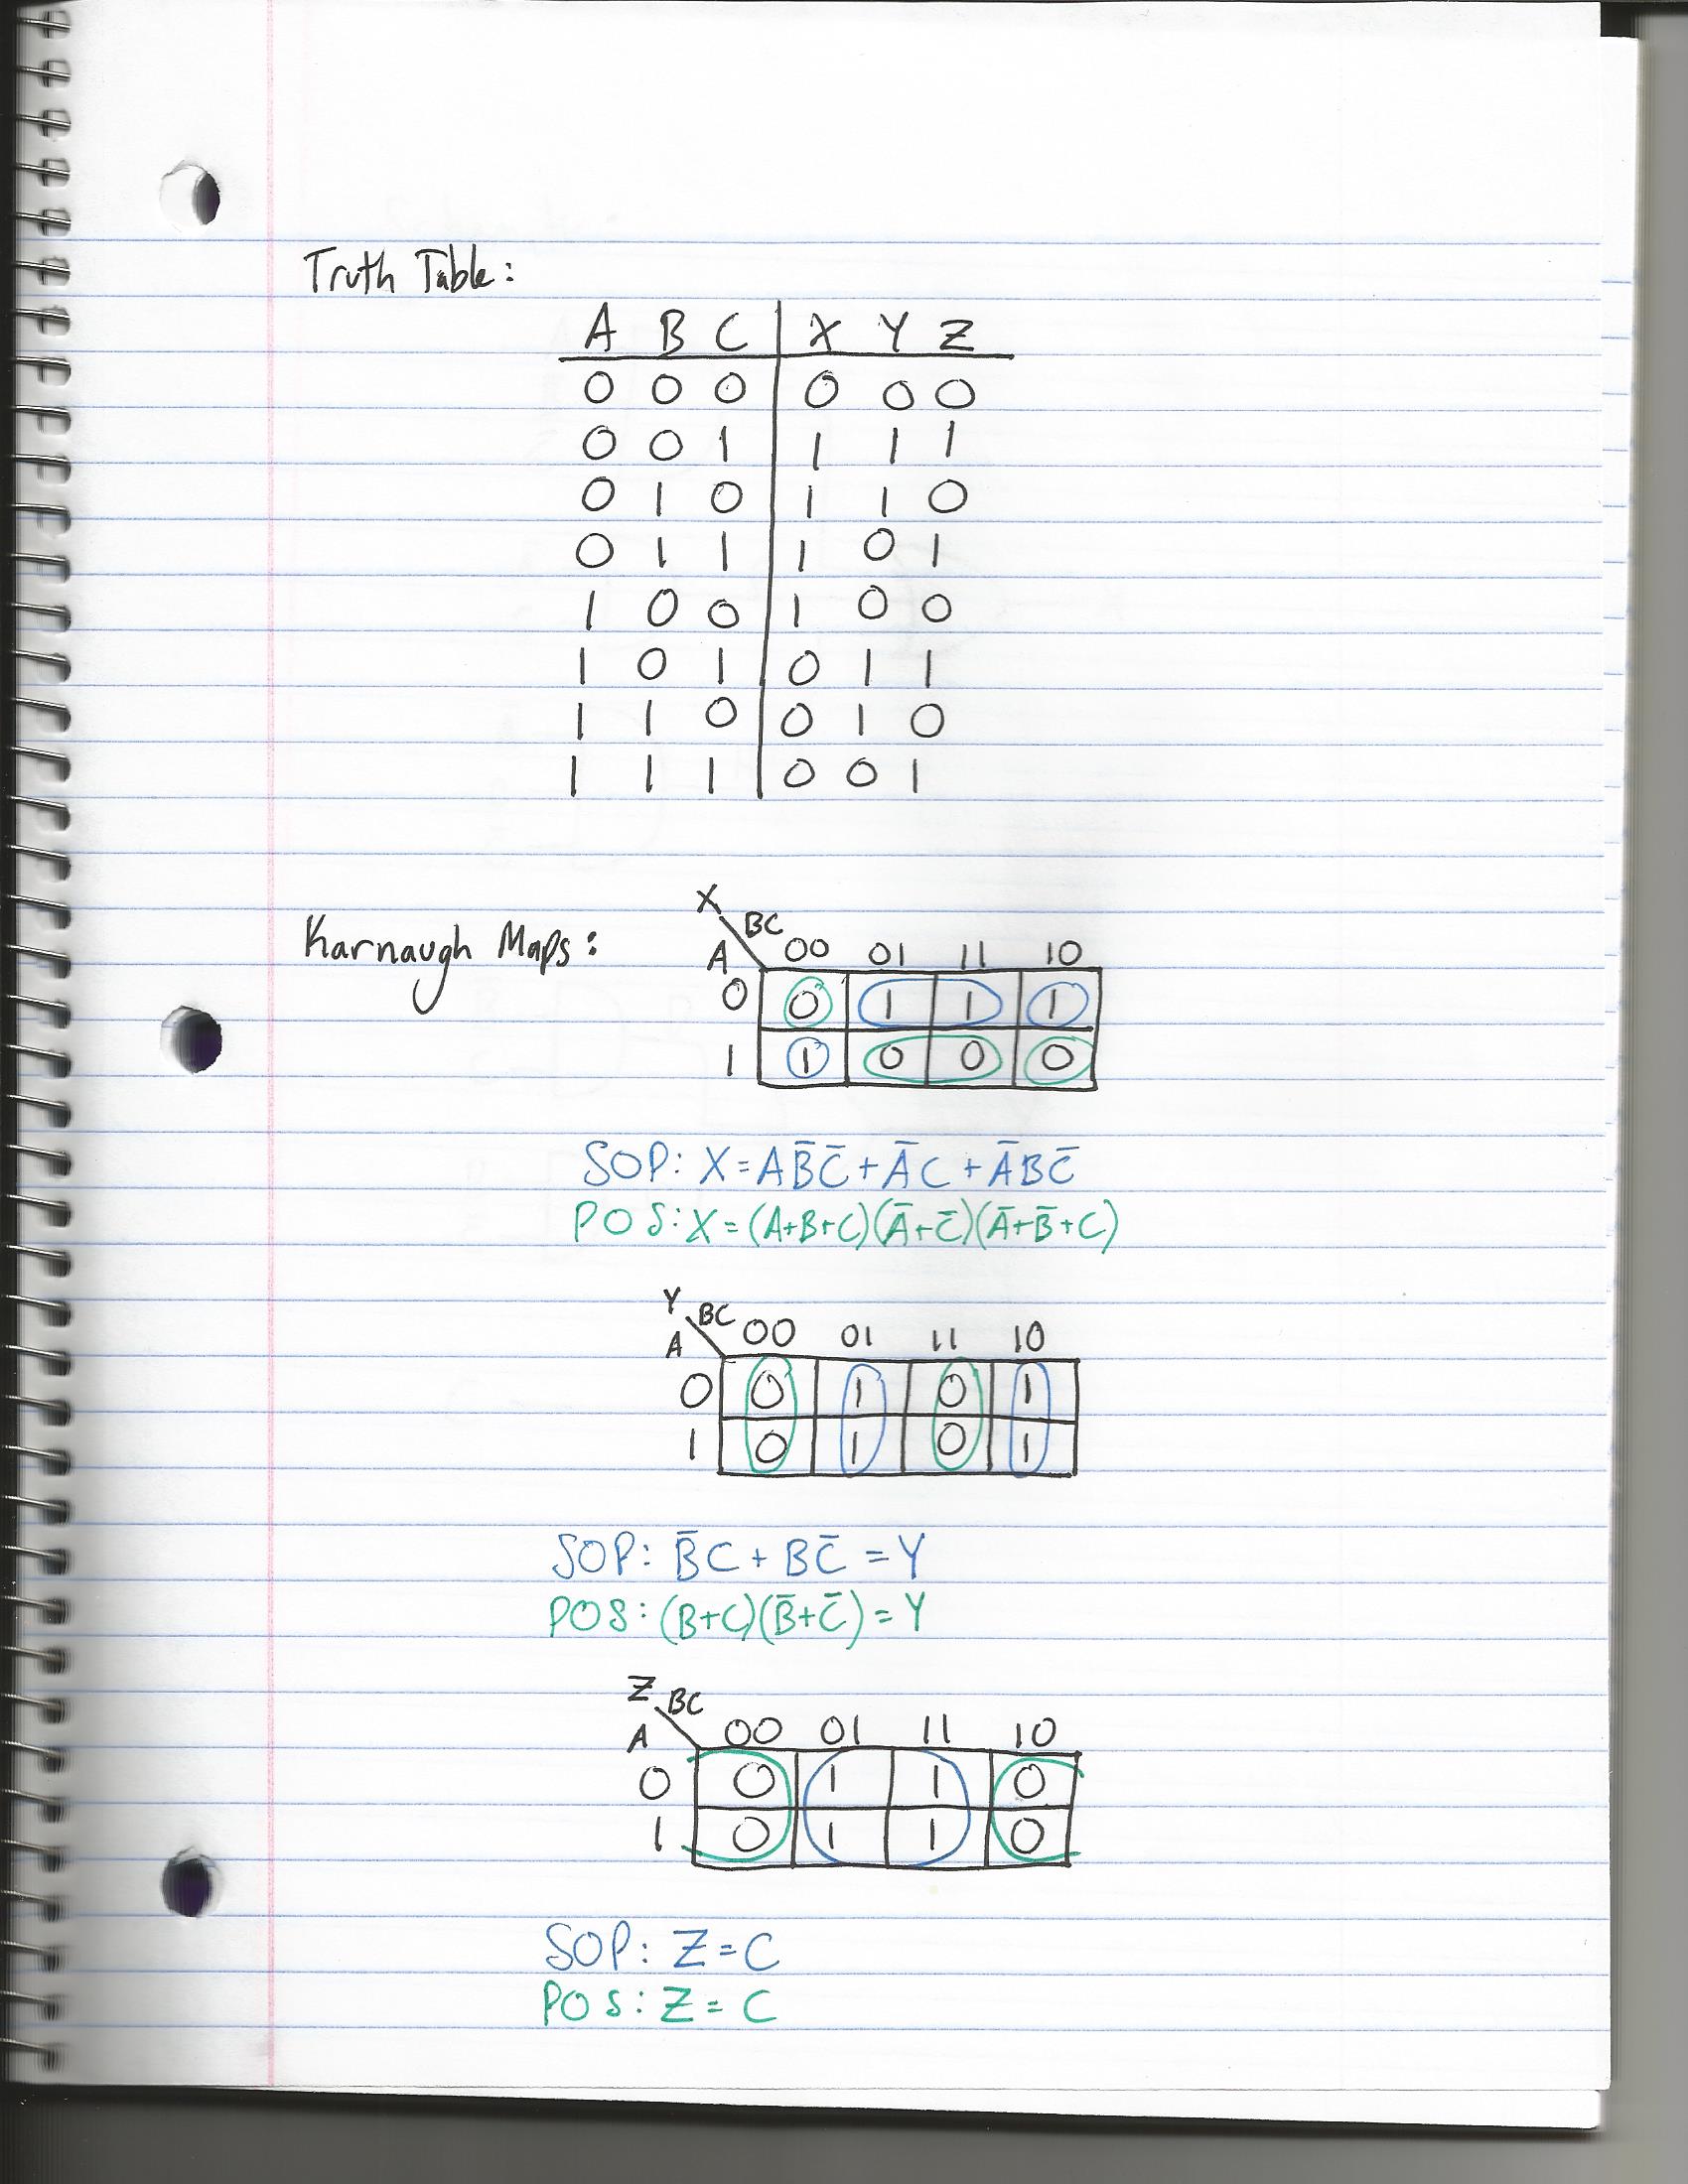 Truth Table:
A B C X Y Z
0 0 0 0 0 0
0 0 1 1 1 1
0 1 0 1 1 0
0 1 1 1 0 1
1 0 0 1 0 0
1 0 1 0 1 1
1 1 0 0 1 0
1 1 1 0 0 1
Karnaugh Maps:
X
BC
A 00 01 11 10
0 0 1 1 1
1 1 0 0 0
SOP: X = AB̅C̅ + A̅C + A̅BC̅
POS: X = (A+B+C)(A̅+C̅)(A̅+B̅+C)
Y BC
A 00 01 11 10
0 0 1 0 1
1 0 1 0 1
SOP: B̅C + BC̅ = Y
POS: (B+C)(B̅+C̅) = Y
Z BC
A 00 01 11 10
0 0 1 1 0
1 0 1 1 0
SOP: Z = C
POS: Z = C